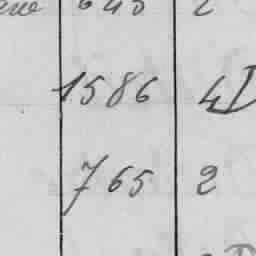 645 2
1586 4D
765 2